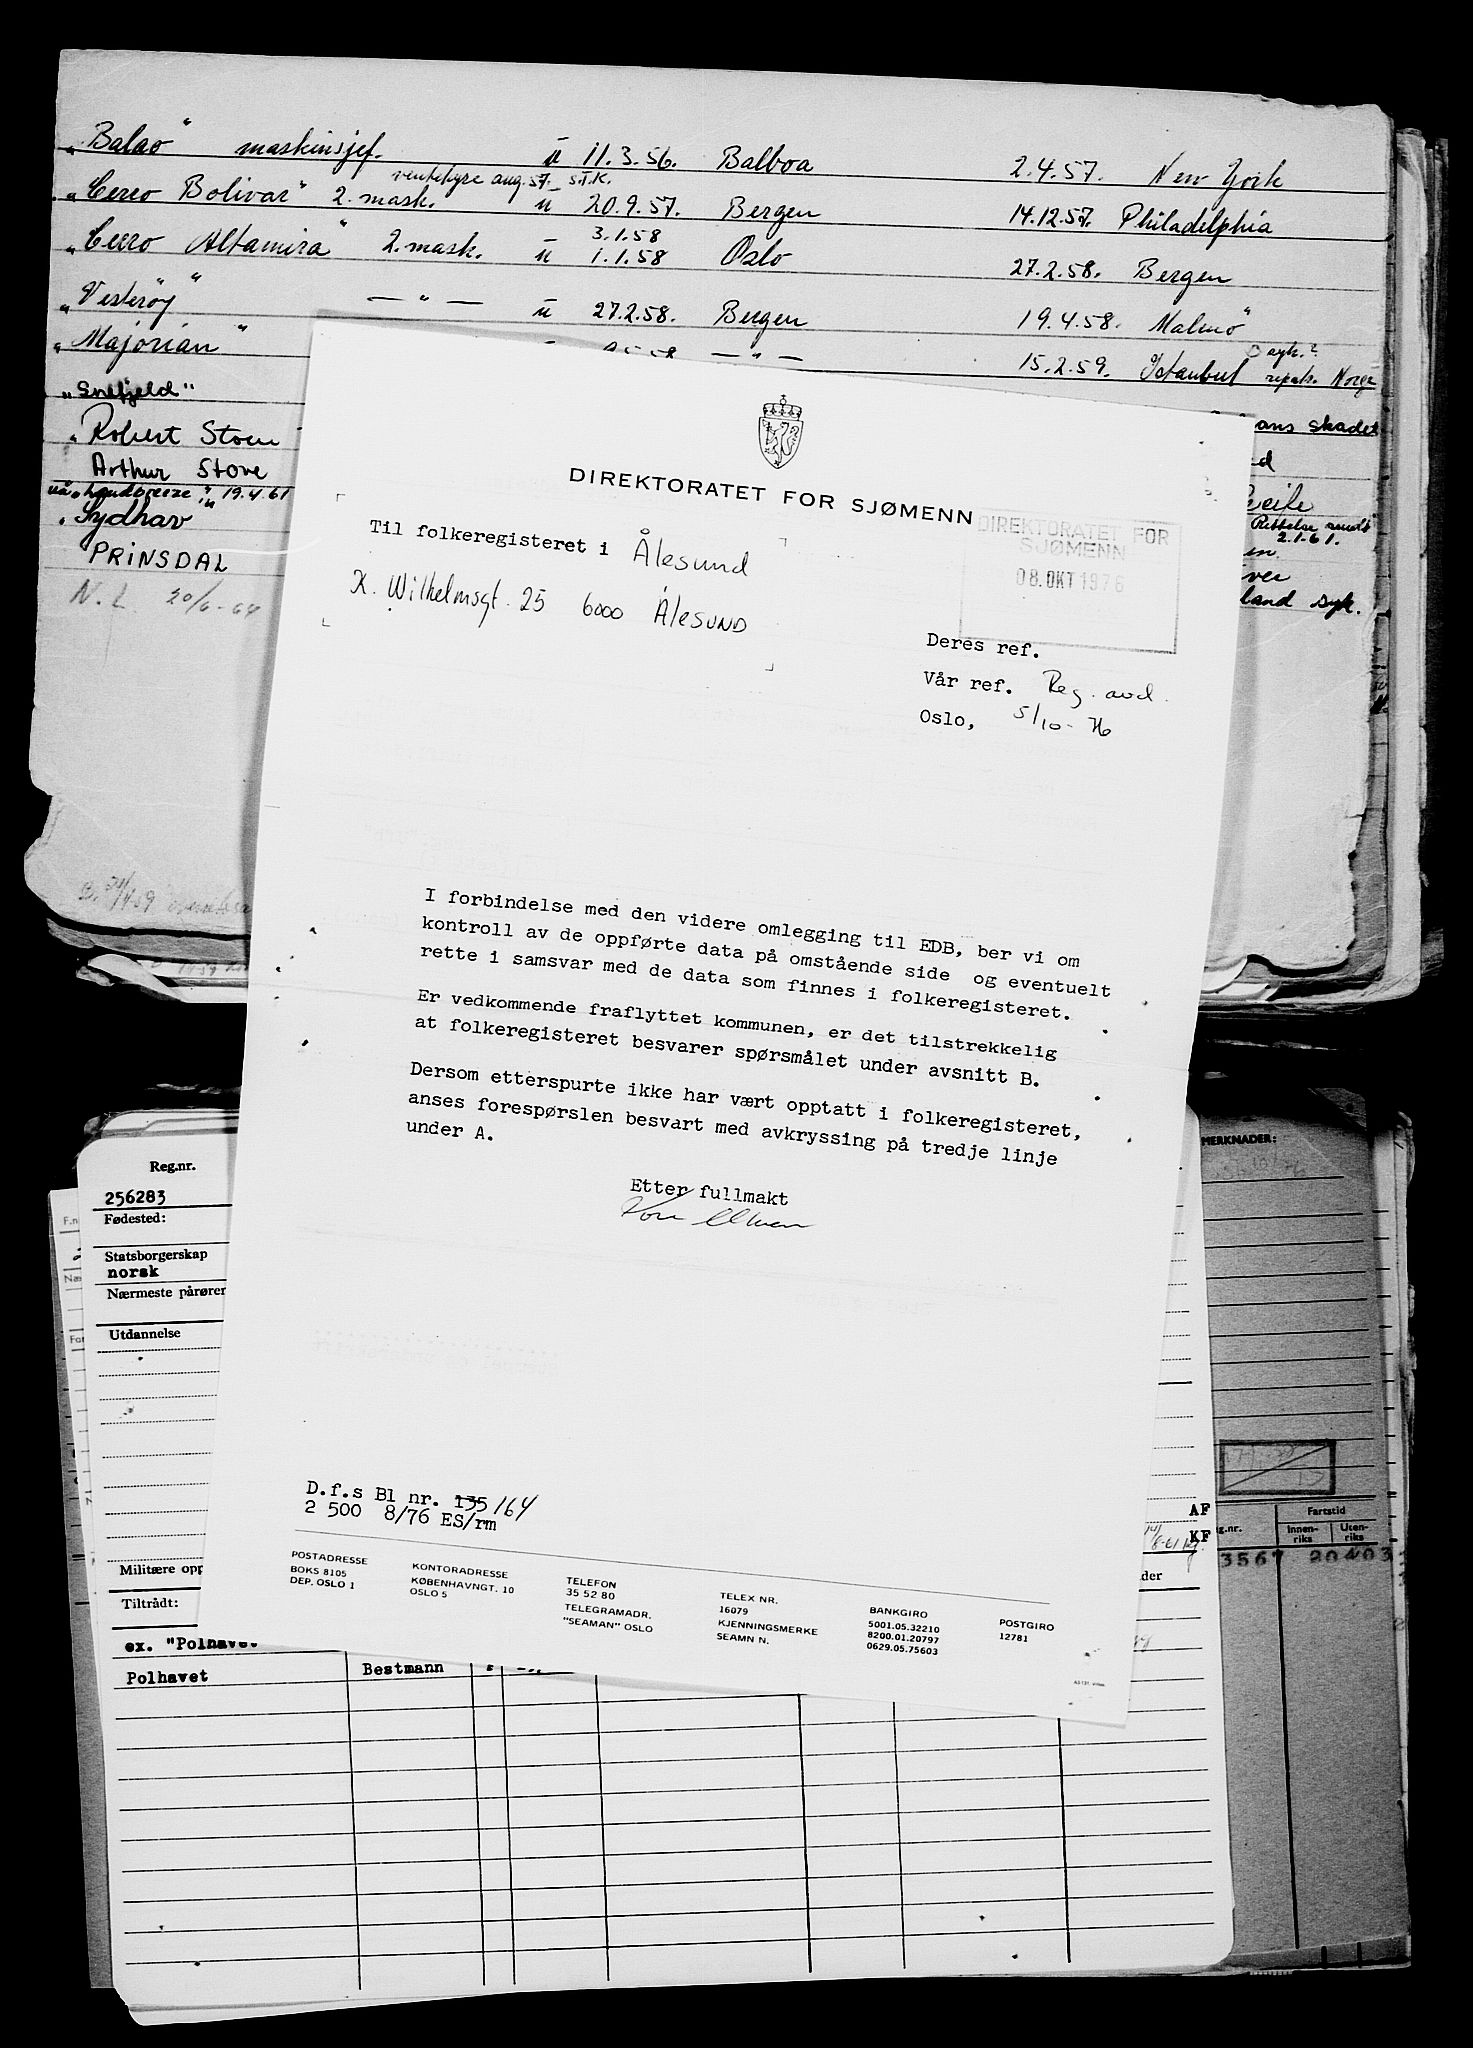 „Balao“ maskinsjef. u 11.3.56. Balboa 2.4.57. New York
ventehyre aug. 57. S.T.K.
„Cerro Bolivar“ 2. mask. u 20.9.57. Bergen 14.12.57. Philadelphia
3.1.58
„Cerro Altamira“ 2. mask. u 1.1.58 Oslo 27.2.58. Bergen
„Vesterøy“ — " — u 27.2.58. Bergen 19.4.58. Malmö
„Majorian“ — " — 15.2.59. Istanbul syk.?
repatr. Norge
„Snefjeld“
skadet
Robert Stove
Arthur Stove
Landbreeze 19.4.61
Rettelse
2.1.61.
Sydhav
PRINSDAL
land syk.
N.L. 20/6-64
DIREKTORATET FOR SJØMENN
DIREKTORATET FOR
SJØMENN
08.OKT 1976
Til folkeregisteret i Ålesund
K. Wilhelmsgt. 25 6000 ÅLESUND
Deres ref.
Vår ref. Reg. avd.
Oslo, 5/10-76
I forbindelse med den videre omlegging til EDB, ber vi om
kontroll av de oppførte data på omstående side og eventuelt
rette i samsvar med de data som finnes i folkeregisteret.
Er vedkommende fraflyttet kommunen, er det tilstrekkelig
at folkeregisteret besvarer spørsmålet under avsnitt B.
Dersom etterspurte ikke har vært opptatt i folkeregisteret,
anses forespørslen besvart med avkryssing på tredje linje
under A.
Etter fullmakt
D.f.s Bl nr. 135 164
2 500 8/76 ES/rm
POSTADRESSE
BOKS 8105
DEP. OSLO 1
KONTORADRESSE
KØBENHAVNGT. 10
OSLO 5
TELEFON
35 52 80
TELEGRAMADR.
"SEAMAN" OSLO
TELEX NR.
16079
KJENNINGSMERKE
SEAMN N.
BANKGIRO
5001.05.32210
8200.01.20797
0629.05.75603
POSTGIRO
12781
Reg.nr.
256283
Fødested:
Statsborgerskap
norsk
Nærmeste pårører
Utdannelse
Militære opp
Tiltrådt:
ex. "Polhavet
Polhavet Bestmann
MERKNADER:
AF
KF
Fartstid
g.nr. Innen-
riks Uten-
riks
3567 20403
der